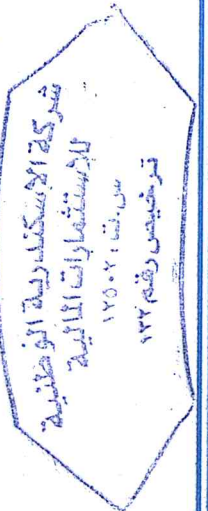 شركة الإسكندرية الوطنية
للإستثمارات المالية
س.ت: ١٢٥٠٢
ترخيص رقم ١٢٢